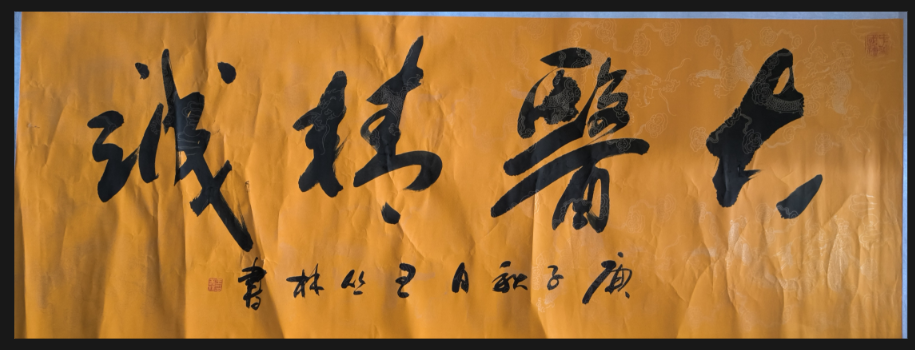 大醫精誠
庚子秋月玉竺林書